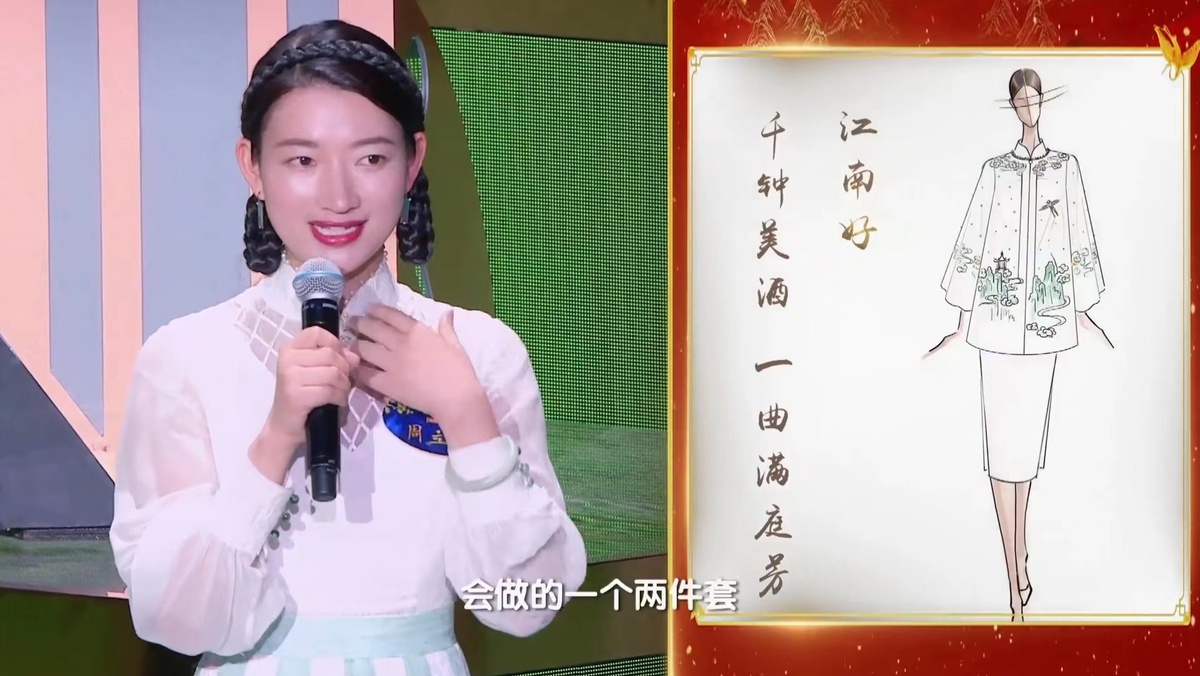 江南好
千钟美酒 一曲满庭芳
周
会做的一个两件套